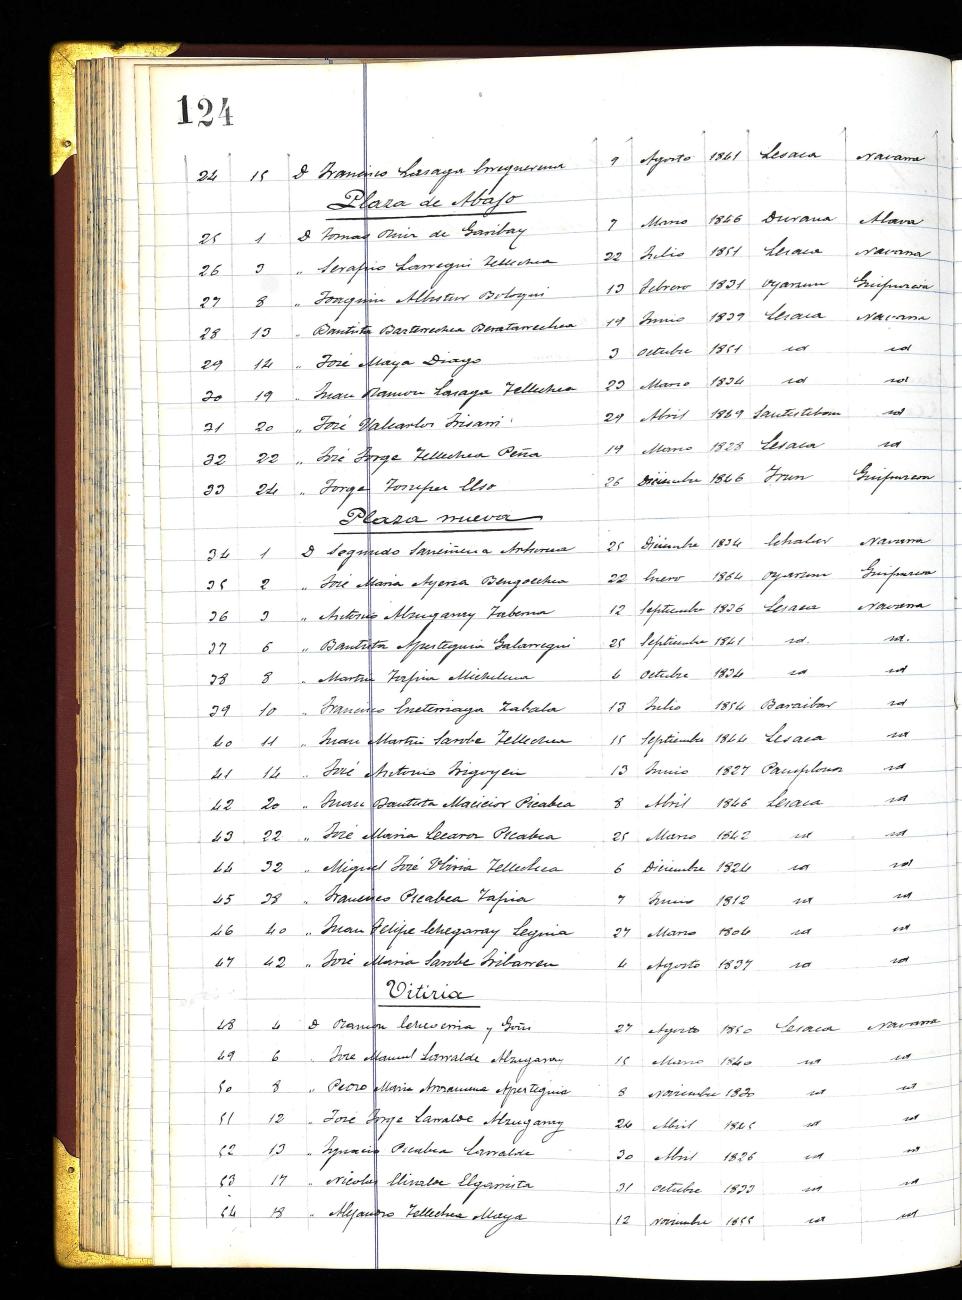 124
24 15 D Francisco Lasaga 9 Agosto 1841 Lesaca Navarra
Plaza de Abajo
25 1 D Tomas Ruiz de Garibay 7 Marzo 1846 Durana Alava
26 3 " Serafin Larregui Tellechea 22 Julio 1851 Lesaca Navarra
27 8 " Joaquin Albistur 13 Febrero 1831 Oyarzun Guipuzcoa
28 13 " Bautista Barterechea Beratarrechea 19 Junio 1839 Lesaca Navarra
29 14 " José Maya Diago 3 Octubre 1851 id id
30 19 " Juan Ramon Lasaga Tellechea 23 Marzo 1834 id id
31 20 " José Valcarlos Irisarri 29 Abril 1849 Santesteban id
32 22 " José Jorge Tellechea Peña 19 Marzo 1828 Lesaca id
33 24 " Jorge Elso 26 Diciembre 1846 Irun Guipuzcoa
Plaza nueva
34 1 D Segundo 25 Diciembre 1834 Echalar Navarra
35 2 " José Maria Ayerza Bengoechea 22 Enero 1864 Oyarzun Guipuzcoa
36 3 " Antonio Alzugaray Taberna 12 Septiembre 1836 Lesaca Navarra
37 6 " Bautista Apesteguia Galarregui 25 Septiembre 1841 id. id.
38 8 " Martin Tapia Michelena 4 Octubre 1834 id id
39 10 " Francisco Zabala 13 Julio 1854 Baraibar id
40 11 " Juan Martin Sarobe Tellechea 15 Septiembre 1844 Lesaca id
41 14 " José Antonio Irigoyen 13 Junio 1827 Pamplona id
42 20 " Juan Bautista Macicior Picabea 8 Abril 1846 Lesaca id
43 22 " José Maria Lecaroz Picabea 25 Marzo 1842 id id
44 32 " Miguel José Tellechea 6 Diciembre 1824 id id
45 38 " Francisco Picabea Tapia 7 Junio 1812 id id
46 40 " Juan Felipe Echegaray Leguia 27 Marzo 1804 id id
47 42 " José Maria Sarobe Iribarren 4 Agosto 1837 id id
Vitiria
48 4 D Ramon Echeverria y Goñi 27 Agosto 1850 Lesaca Navarra
49 6 " José Manuel Larralde Alzugaray 15 Marzo 1840 id id
50 8 " Pedro Maria Apesteguia 8 Noviembre 1830 id id
51 12 " José Jorge Larralde Alzugaray 24 Abril 1845 id id
52 13 " Ignacio Picabea Larralde 30 Abril 1826 id id
53 17 " Nicolas Elizalde Elgarrista 31 Octubre 1833 id id
54 18 " Alejandro Tellechea Maya 12 Noviembre 1855 id id